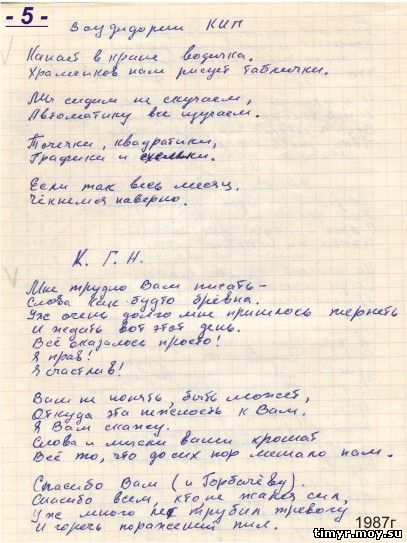 - 5 -
В аудитории КИП
Капает в кране водичка.
Храменков нам рисует таблички.
Мы сидим не скучаем,
Автоматику все изучаем.
Точечки, квадратики,
Графики и схемки.
Если так весь месяц.
Чекнемся наверно.
К. Г. Н.
Мне трудно Вам писать –
Слова как будто брёвна.
Уж очень долго мне пришлось терпеть
И ждать вот этот день.
Всё оказалось просто!
Я прав!
Я счастлив!
Вам не понять, быть может,
Откуда эта нежность к Вам.
Я Вам скажу.
Слова и мысли ваши крошат
Всё то, что до сих пор мешало нам.
Спасибо Вам (и Горбачёву).
Спасибо всем, кто не жалел сил,
Уж много лет трубил тревогу
И горечь поражений пил.
1987г
timyr.moy.su